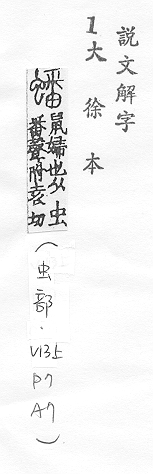 説文解字
1大徐本
蟠 鼠婦也从虫
番聲附袁切
(虫部.V13上
P7
A7)